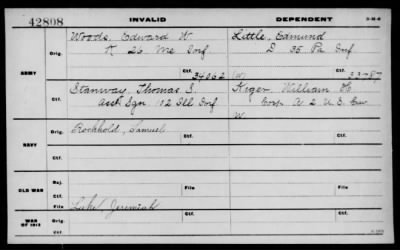 42808 INVALID DEPENDENT 3-H-6
Woods, Edward W. Little, Edmund
Orig. K 26 Me Inf. D 35 Pa Inf
ARMY Ctf. 34062 Ctf. 23-87
Stanway, Thomas S. Kiger, William H.
Ctf. Asst Sgn 102 Ill Inf Corp A 2 U.S. Cav
W.
Rockhold, Samuel
Orig. Ctf. Ctf.
NAVY
Ctf.
Rej.
OLD WAR File File
Ctf.
Lake Jeremiah
WAR OF 1812 Orig. Ctf. Ctf.